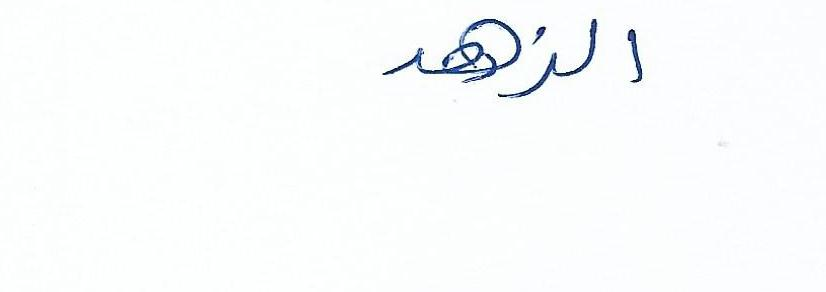 الزهد